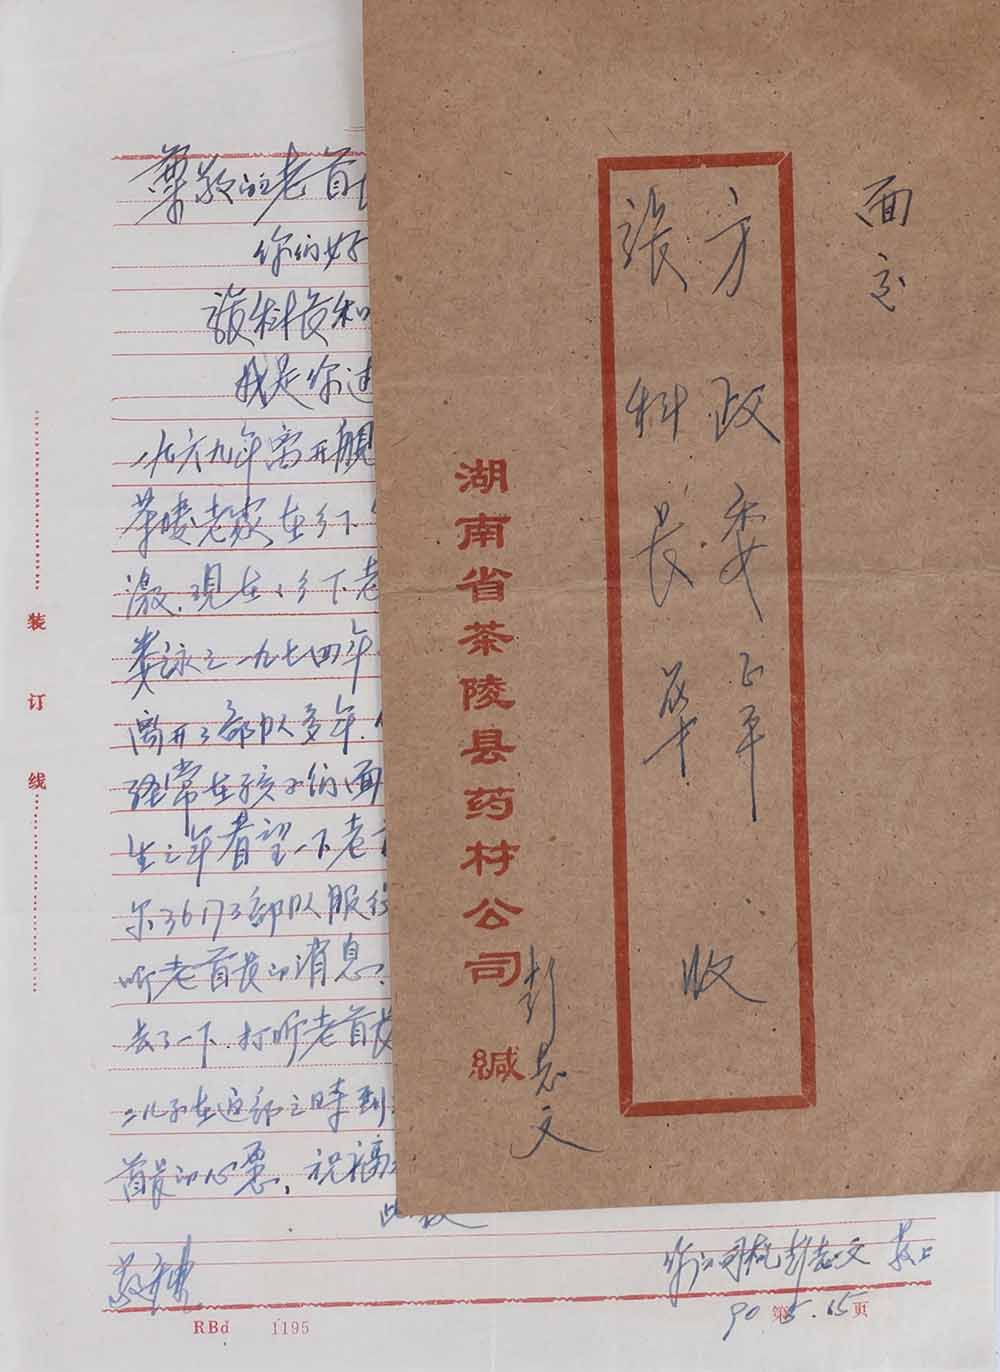 面交
方政委正平
张科长 华
收
湖南省茶陵县药材公司 缄
彭志文
尊敬的老首
你们好
张科长和
我是你过
一九六九年离开
茶陵老家,在乡下
激,现在乡下老
一九七四年
离开了部队多年,
经常在孩子们面
生之年看望一下老
尔36173部队服役
听老首长的消息,
去了一下.打听老首长
二儿子在这部之时到
首长的心愿,祝福
此致
敬礼
你的司机彭志文 敬上
90.5.15
装订线
RBd 1195
第 页